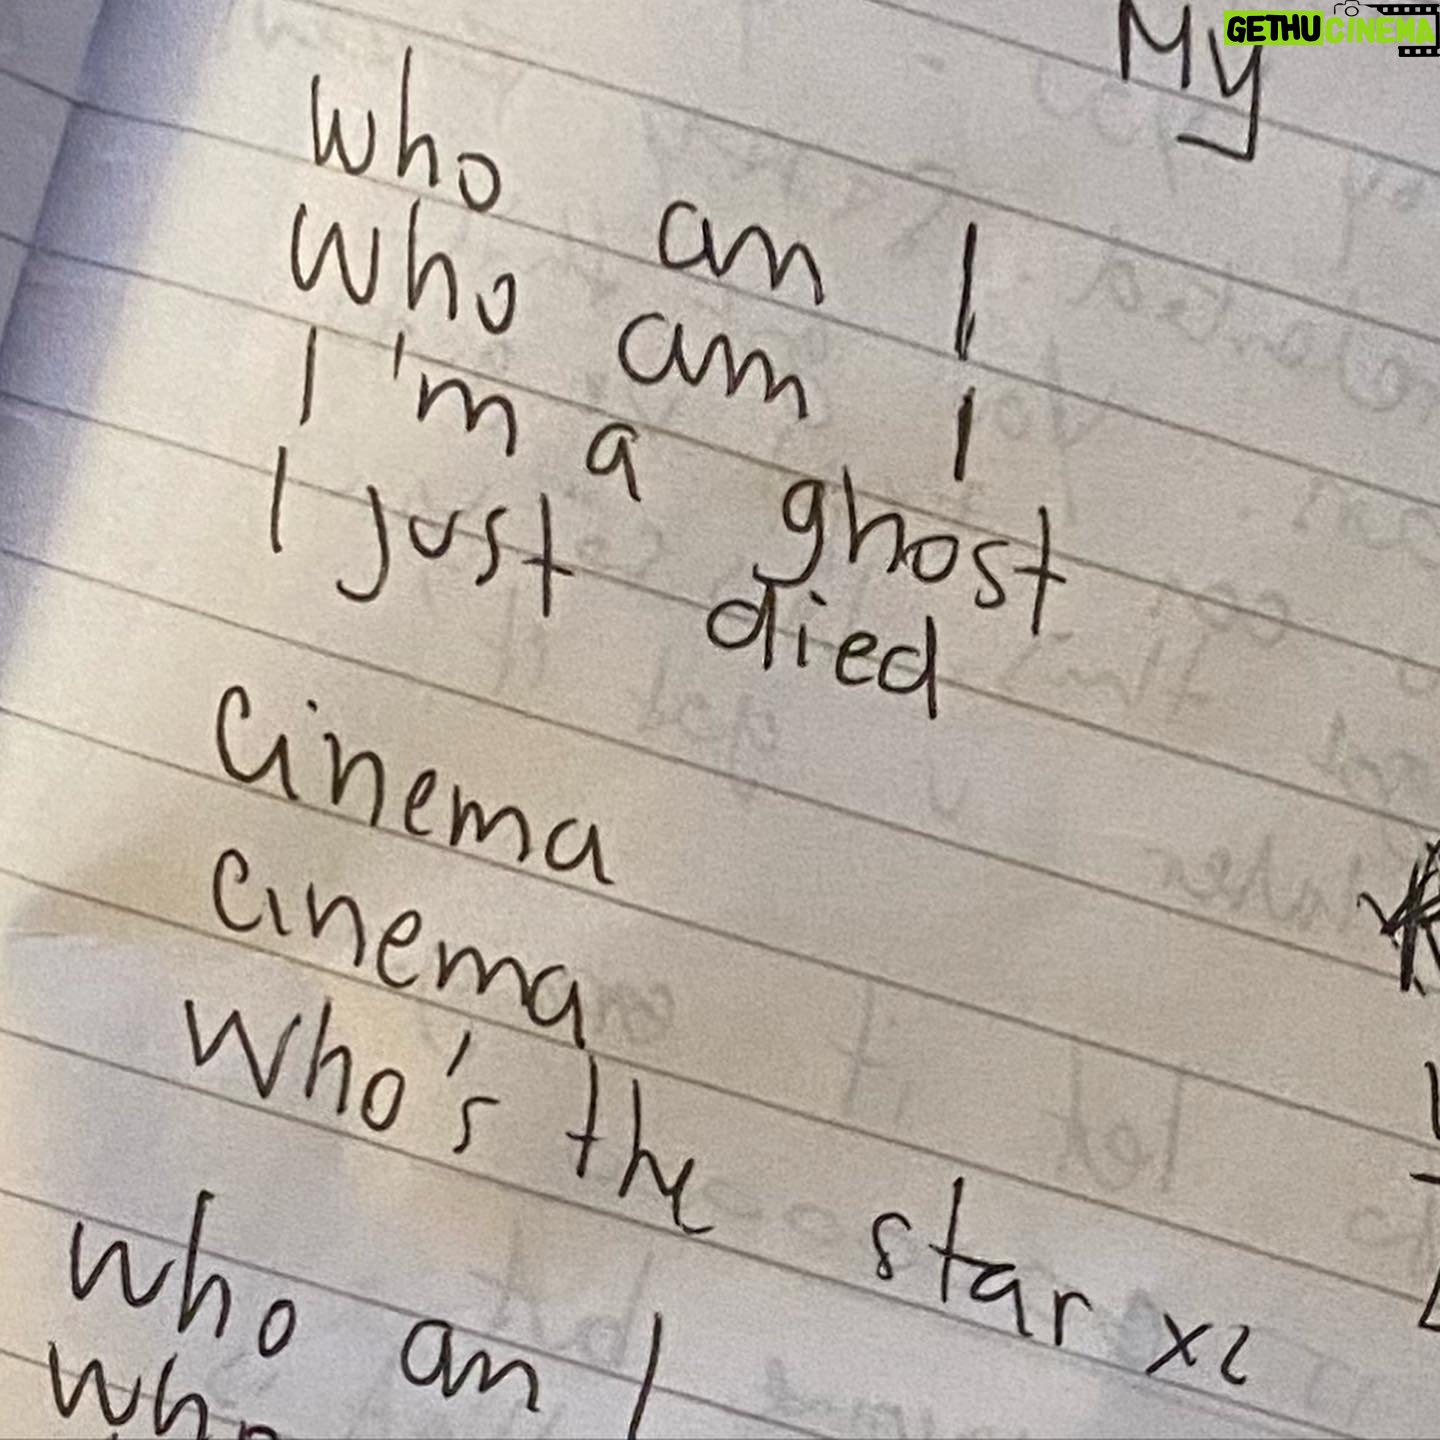 GETHUCINEMA
My
who am I
who am I
I'm a ghost
I just died
cinema
cinema
who's the star x2
who am I
who